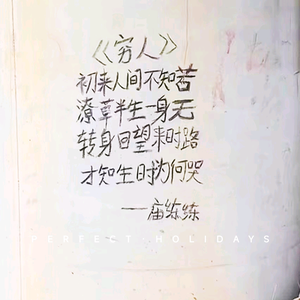 《穷人》
初来人间不知苦
潦草半生一身无
转身回望来时路
才知生时为何哭
一庙练练
PERFECT·HOLIDAYS